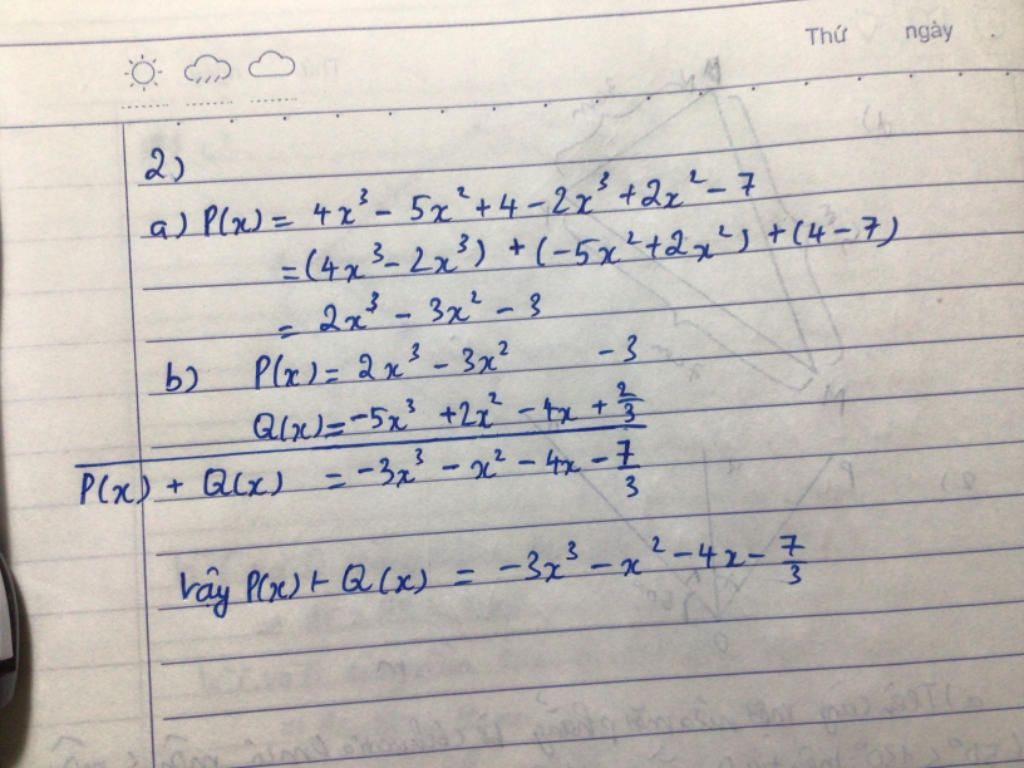 Thứ ngày
2)
a) P(x) = 4x³ - 5x² + 4 - 2x³ + 2x² - 7
= (4x³ - 2x³) + (-5x² + 2x²) + (4 - 7)
= 2x³ - 3x² - 3
b) P(x) = 2x³ - 3x² - 3
Q(x) = -5x³ + 2x² - 4x + 2/3
P(x) + Q(x) = -3x³ - x² - 4x - 7/3
Vậy P(x) + Q(x) = -3x³ - x² - 4x - 7/3